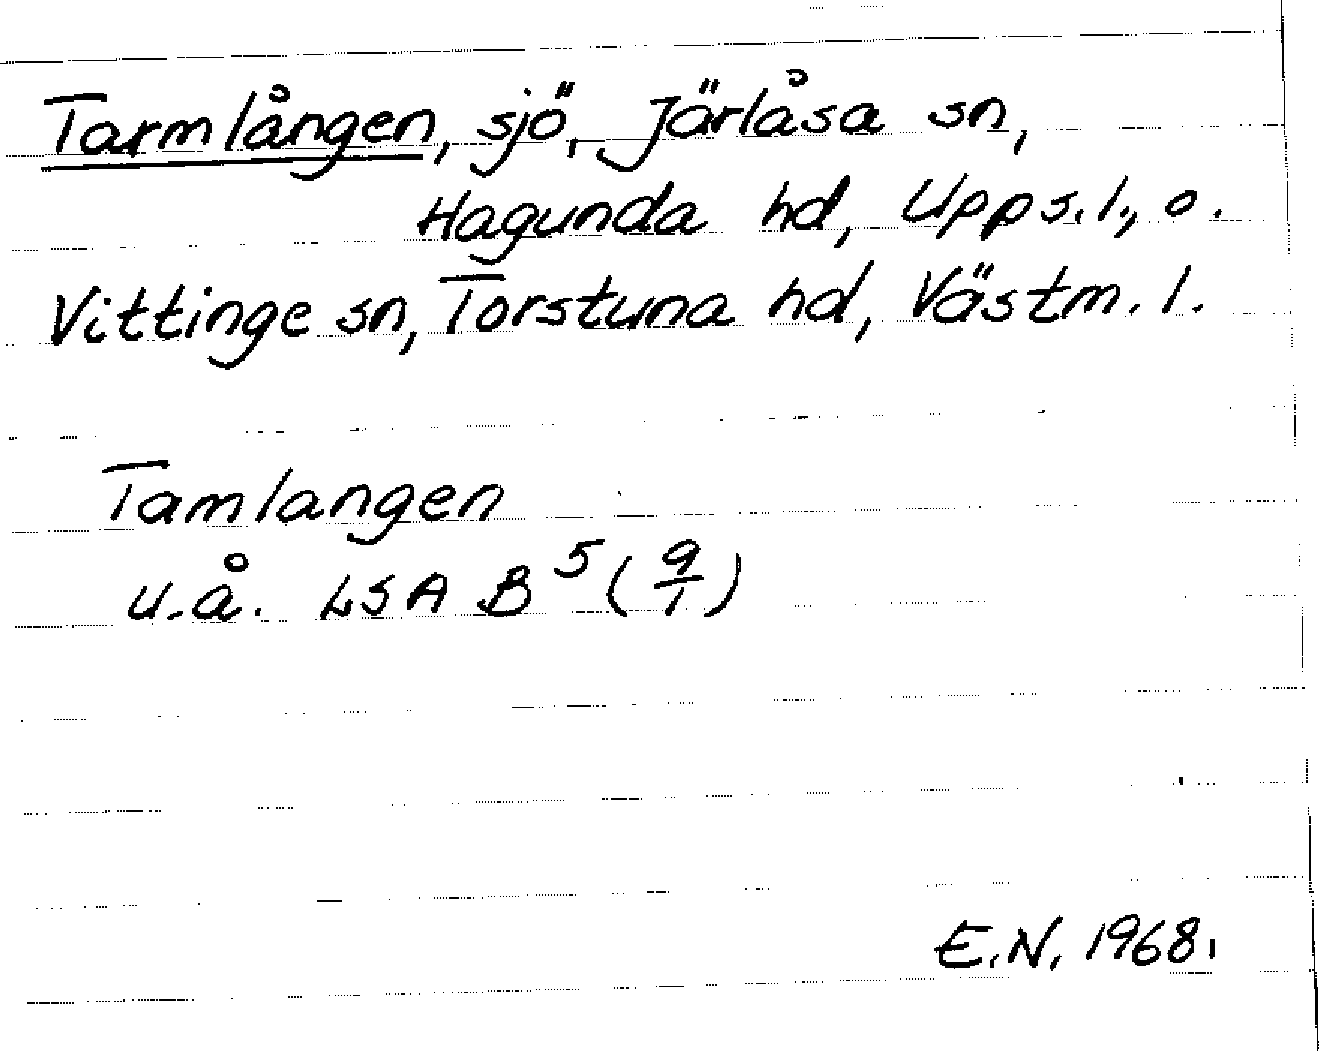 Tarmlången, sjö, Järlåsa sn,
Hagunda hd, Upps. l., o.
Vittinge sn, Torstuna hd, Västm. l.
Tamlangen
u.å. LSA B⁵ (9/1)
E.N. 1968.